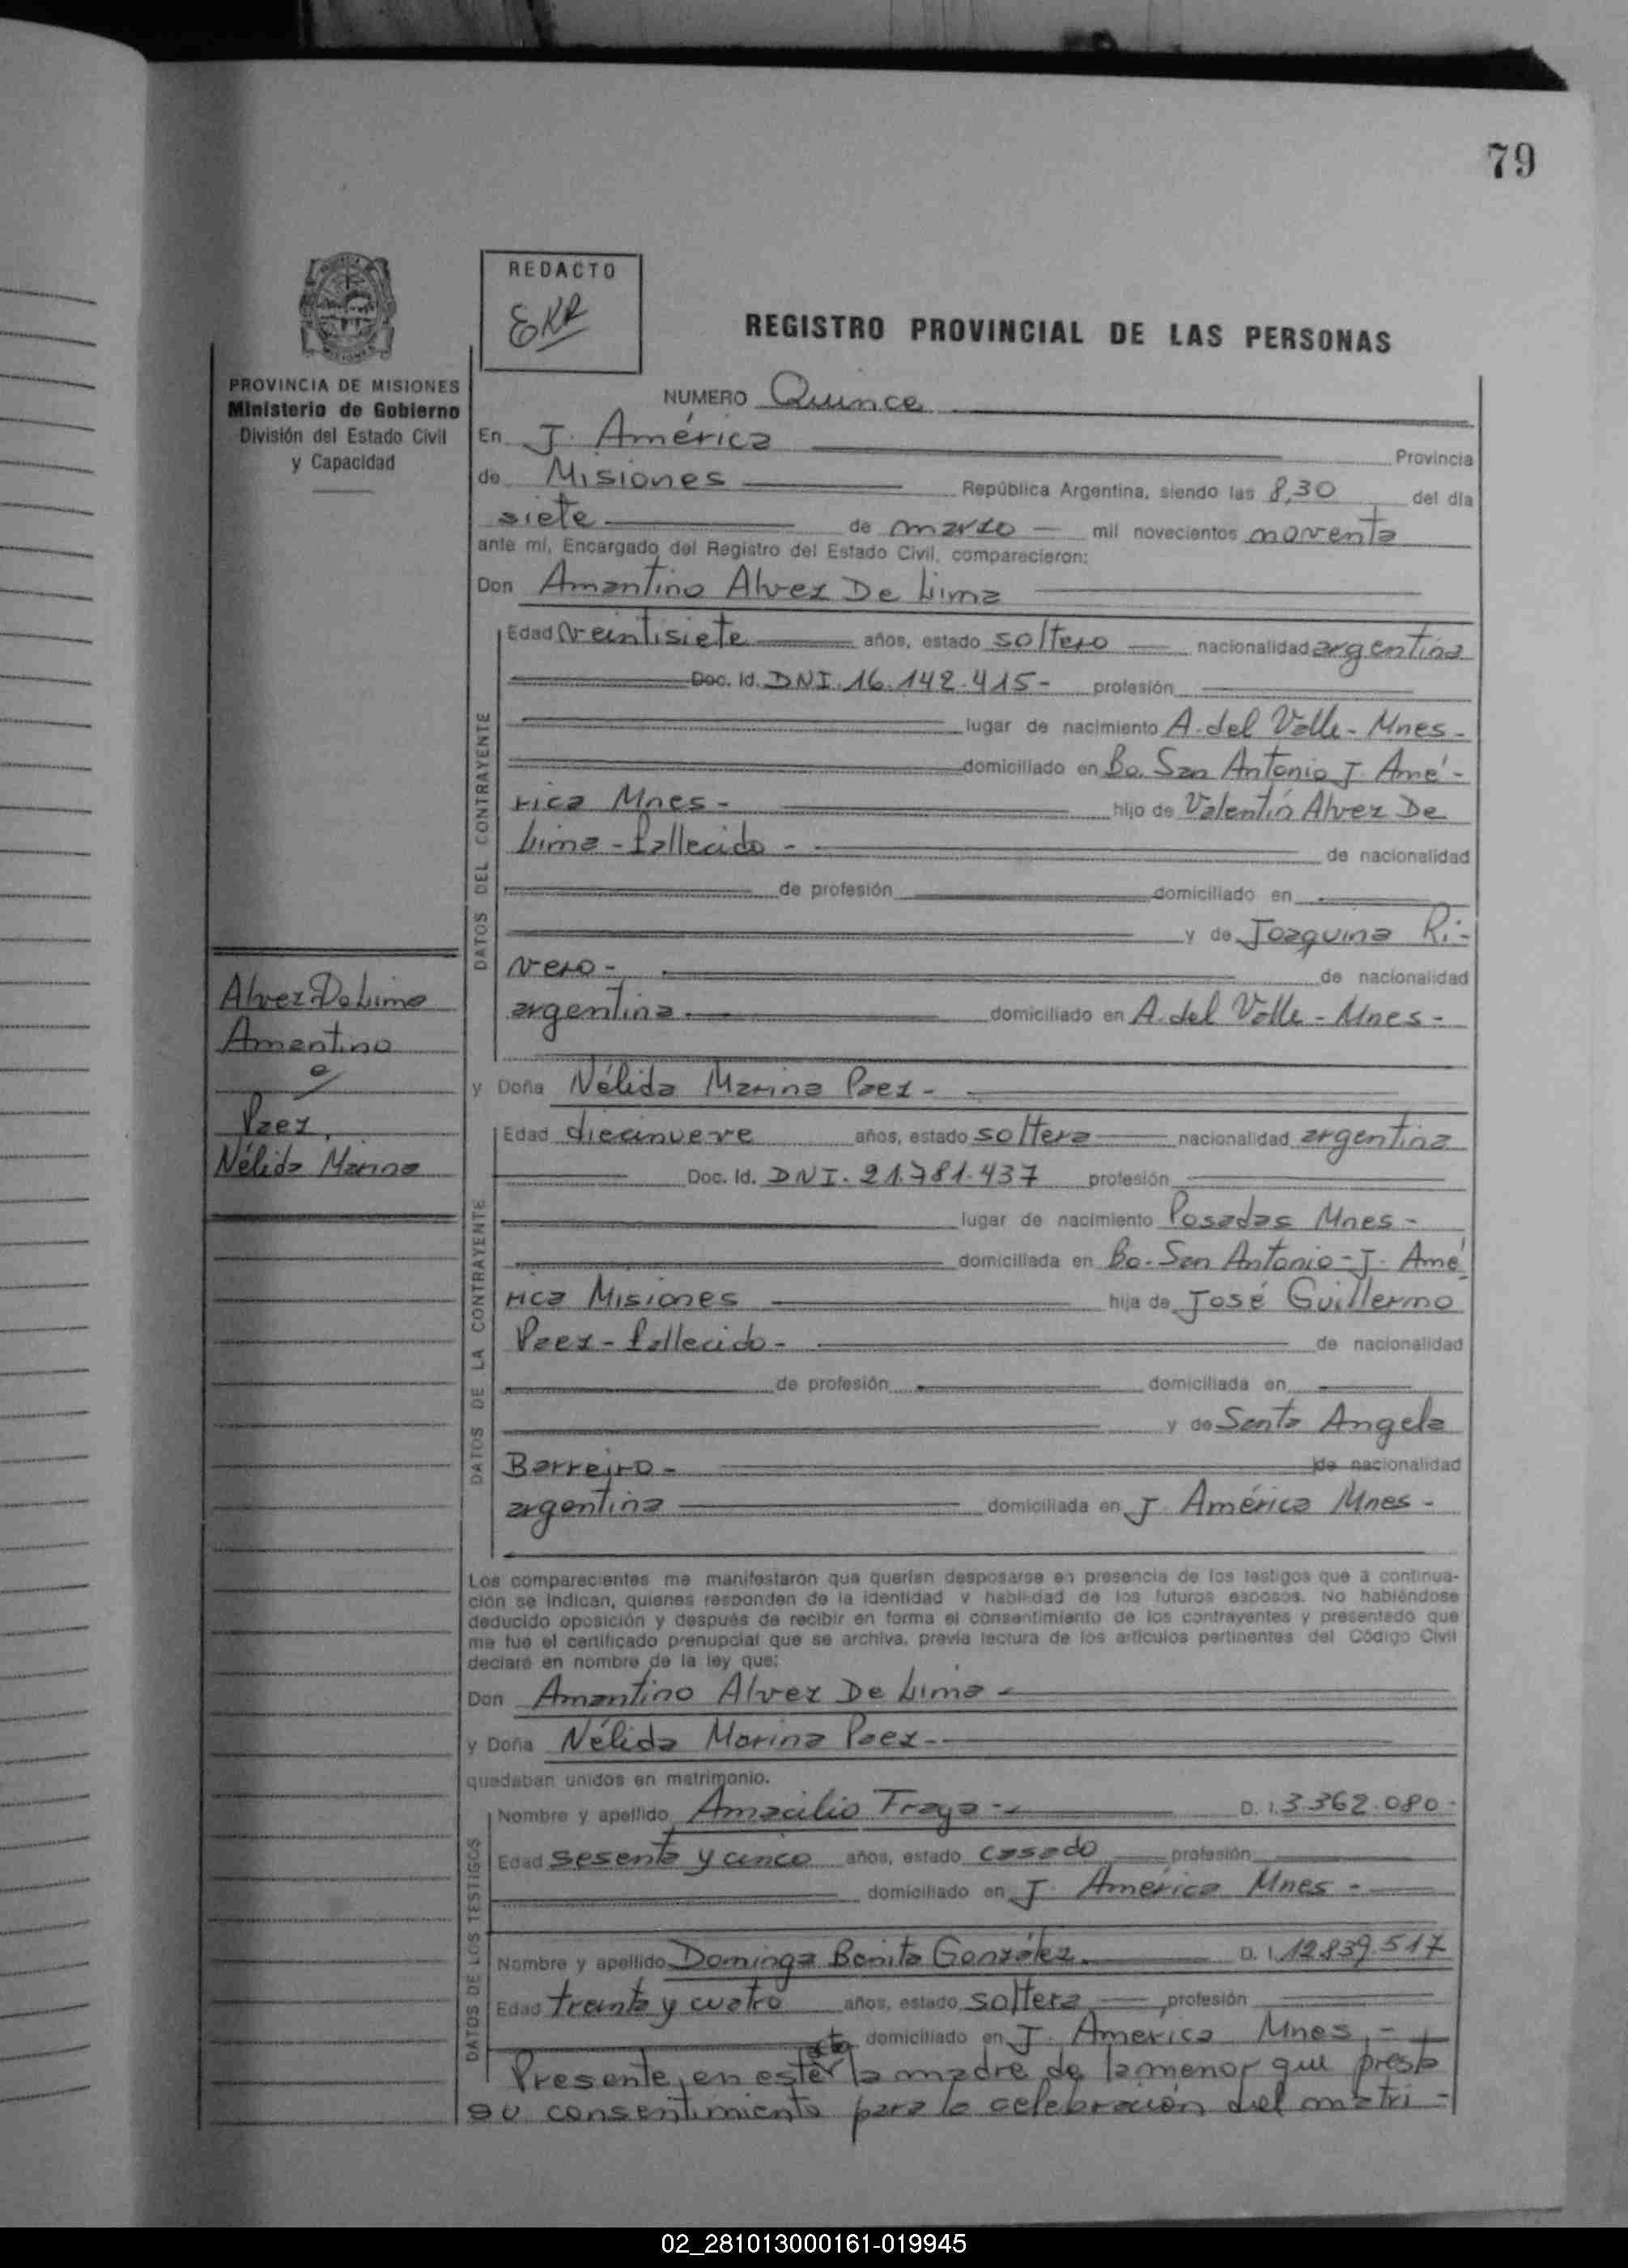 79
REDACTO
EKR
REGISTRO PROVINCIAL DE LAS PERSONAS
PROVINCIA DE MISIONES
Ministerio de Gobierno
División del Estado Civil
y Capacidad
NUMERO Quince
En J. América Provincia
de Misiones República Argentina, siendo las 8,30 del día
siete de marzo mil novecientos noventa
ante mí, Encargado del Registro del Estado Civil, comparecieron:
Don Amantino Alvez De Lima
DATOS DEL CONTRAYENTE
Edad veintisiete años, estado soltero nacionalidad argentina
Doc. Id. DNI. 16.142.415- profesión
lugar de nacimiento A. del Valle - Mnes -
domiciliado en Bo. San Antonio J. Amé-
rica Mnes - hijo de Valentín Alvez De
Lima - fallecido - de nacionalidad
de profesión domiciliado en
y de Joaquina Ri-
vero - de nacionalidad
argentina - domiciliado en A. del Valle - Mnes -
Alvez De Lima
Amantino
e/
Paez,
Nélida Marina
y Doña Nélida Marina Paez -
DATOS DE LA CONTRAYENTE
Edad diecinueve años, estado soltera nacionalidad argentina
Doc. Id. DNI. 21.781.437 profesión
lugar de nacimiento Posadas Mnes -
domiciliada en Bo. San Antonio - J. Amé
rica Misiones hija de José Guillermo
Paez - fallecido - de nacionalidad
de profesión domiciliada en
y de Santa Angela
Barreiro - de nacionalidad
argentina domiciliada en J. América Mnes -
Los comparecientes me manifestaron que querían desposarse en presencia de los testigos que a continua-
ción se indican, quienes responden de la identidad y habilidad de los futuros esposos. No habiéndose
deducido oposición y después de recibir en forma el consentimiento de los contrayentes y presentado que
me fué el certificado prenupcial que se archiva, previa lectura de los artículos pertinentes del Código Civil
declaré en nombre de la ley que:
Don Amantino Alvez De Lima -
y Doña Nélida Marina Paez -
quedaban unidos en matrimonio.
DATOS DE LOS TESTIGOS
Nombre y apellido Amacilio Fraga - D. I. 3.362.080 -
Edad sesenta y cinco años, estado casado profesión
domiciliado en J. América Mnes -
Nombre y apellido Dominga Benita González D. I. 12.839.517
Edad treinta y cuatro años, estado soltera profesión
domiciliado en J. America Mnes, -
acto
Presente, en este la madre de la menor que presta
su consentimiento para la celebración del matri -
02_281013000161-019945